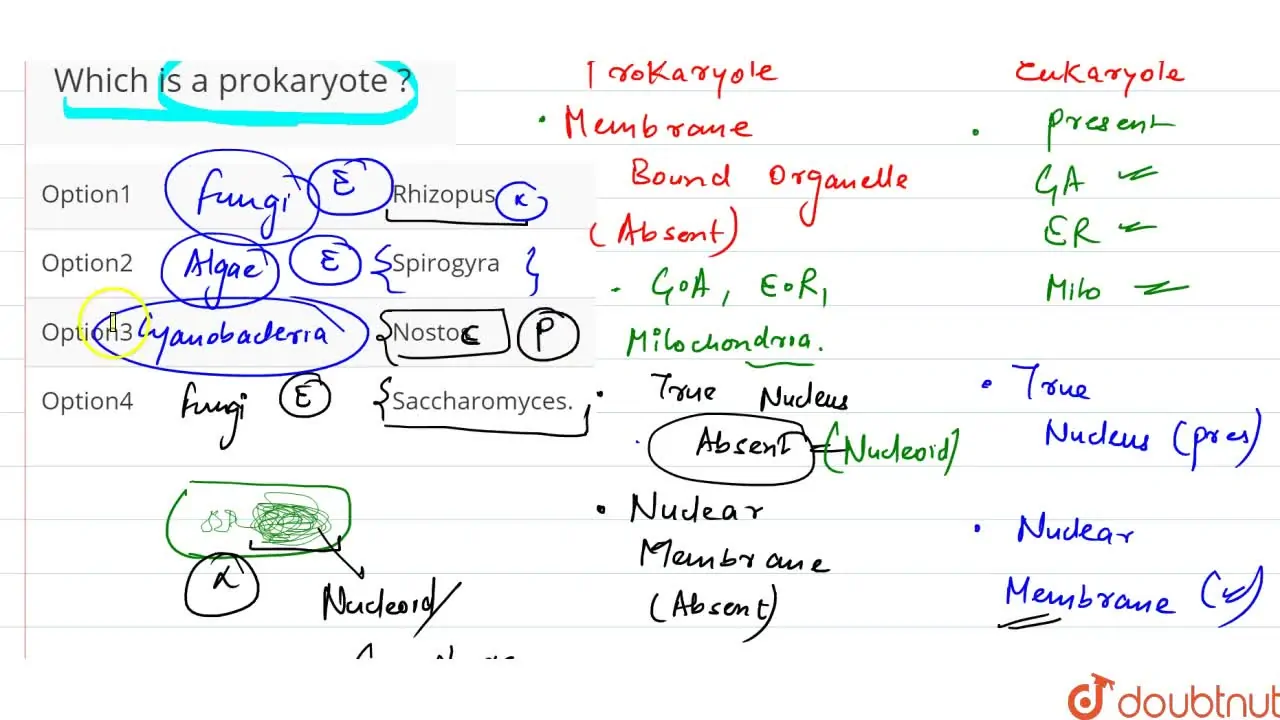 Which is a prokaryote ?
Option1 Fungi E Rhizopus
Option2 Algae E Spirogyra
Option3 Cyanobacteria Nostoc P
Option4 Fungi E Saccharomyces.
Nucleoid/
Prokaryote
• Membrane
Bound Organelle
(Absent)
• GoA, EoR,
Mitochondria.
• True Nucleus
Absent = (Nucleoid)
• Nuclear
Membrane
(Absent)
Eukaryote
• Present
GA
ER
Mito
• True
Nucleus (pres)
• Nuclear
Membrane (✓)
doubtnut